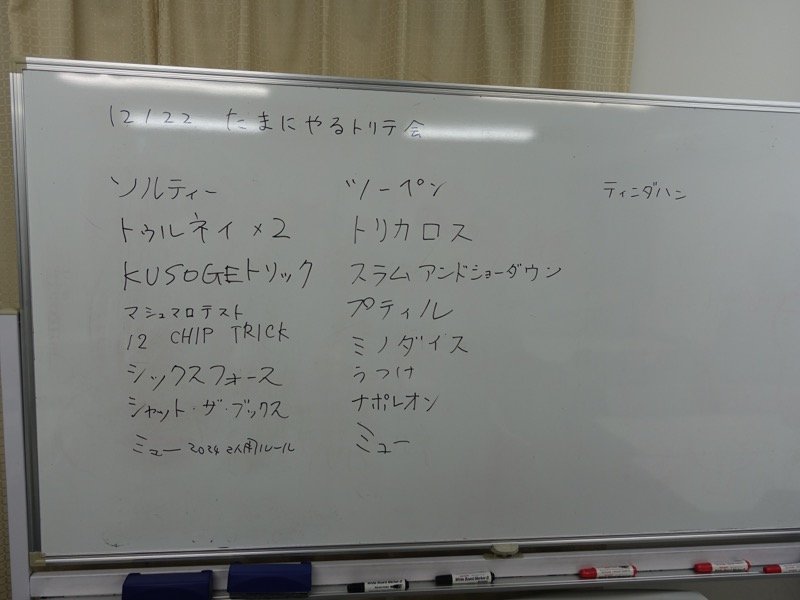 12/22 たまにやるトリテ会
ソルティー
トゥルネイ×2
KUSOGEトリック
マシュマロテスト
12 CHIP TRICK
シックスフォース
シャット・ザ・ブックス
ミュー2024 2人用ルール
ツーペン
トリカロス
スラムアンドショーダウン
プティル
ミノダイス
うつけ
ナポレオン
ミュー
ティンダハン